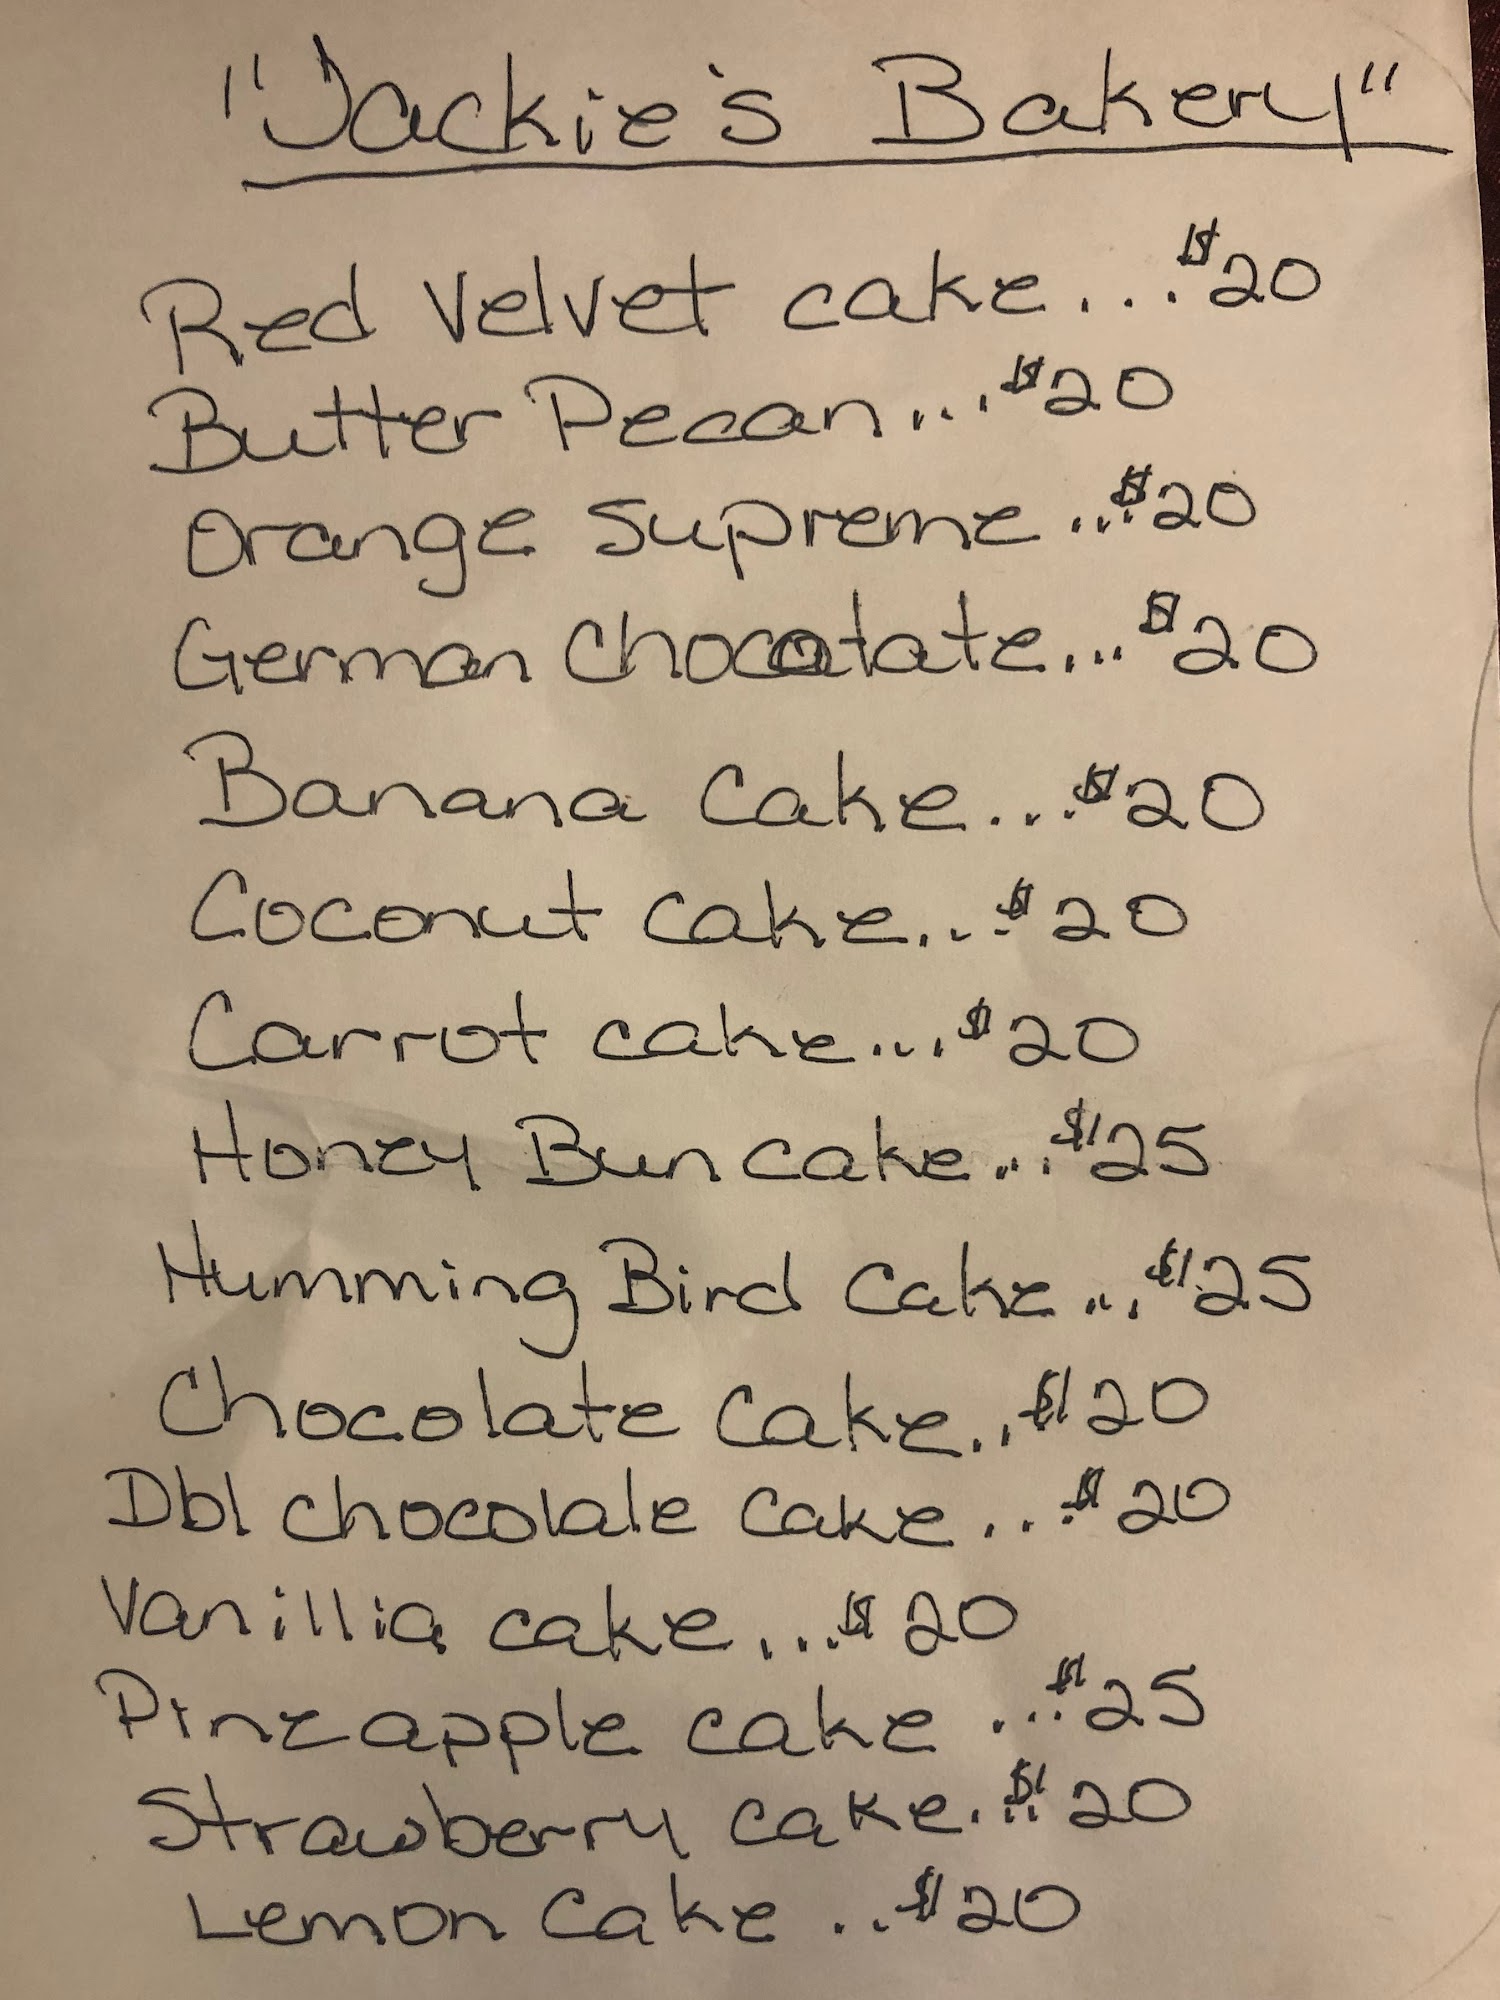 "Jackie's Bakery"
Red Velvet cake...$20
Butter Pecan...$20
Orange Supreme...$20
German Chocolate...$20
Banana Cake...$20
Coconut Cake...$20
Carrot cake...$20
Honey Bun cake...$25
Humming Bird Cake...$25
Chocolate Cake...$20
Dbl chocolate Cake...$20
Vanillia cake...$20
Pineapple cake...$25
Strawberry cake...$20
Lemon Cake...$20